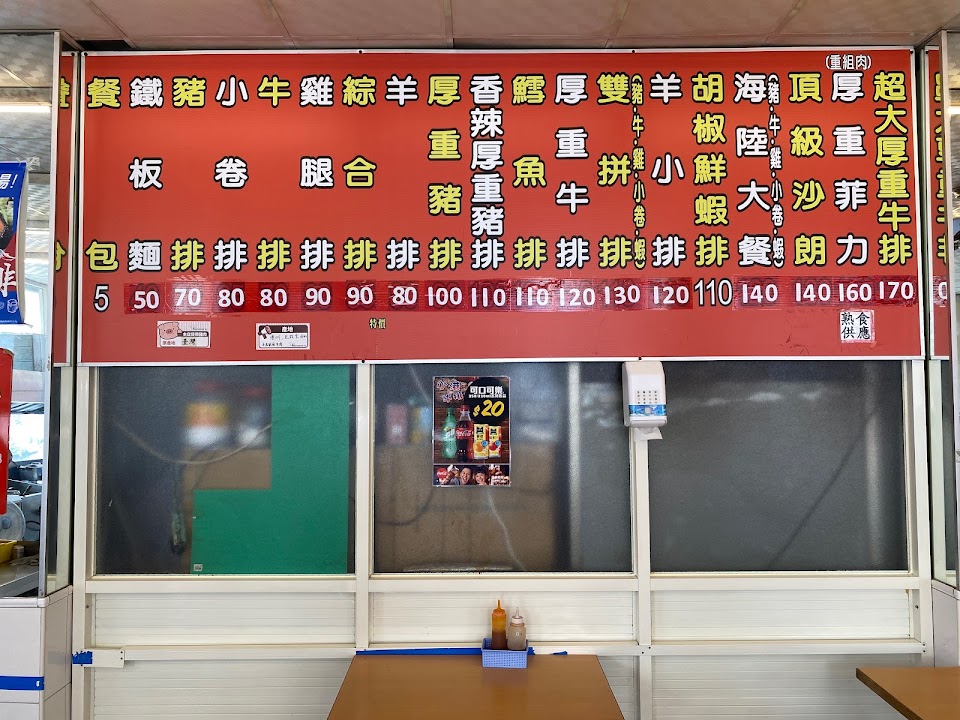 餐包 5
鐵板麵 50
豬排 70
小卷排 80
牛排 80
雞腿排 90
綜合排 90
羊排 80
厚重豬排 100
香辣厚重豬排 110
鱈魚排 110
厚重牛排 120
雙拼排 (豬·牛·雞·小卷·蝦) 130
羊小排 120
胡椒鮮蝦排 110
海陸大餐 (豬·牛·雞·小卷·蝦) 140
頂級沙朗 140
厚重菲力 160
(重組肉)
超大厚重牛排 170
臺灣
產地
特價
熟食供應
可口可樂
$20